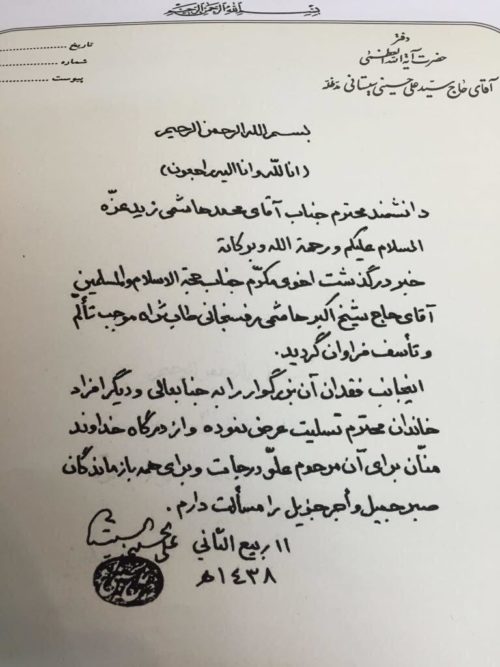 بسم الله الرحمن الرحیم
دفتر
حضرت آیة الله العظمی
آقای حاج سید علی حسینی سیستانی مدظله
تاریخ
شماره
پیوست
بسم الله الرحمن الرحیم
(انا لله وانا الیه راجعون)
دانشمند محترم جناب آقای محمد هاشمی زید عزّه
السلام علیکم ورحمة الله وبرکاته
خبر درگذشت اخوی مکرّم جناب حجة الاسلام والمسلمین
آقای حاج شیخ اکبر هاشمی رفسنجانی طاب ثراه موجب تألّم
وتأسف فراوان گردید.
اینجانب فقدان آن بزرگوار را به جنابعالی و دیگر افراد
خاندان محترم تسلیت عرض نموده و از درگاه خداوند
منّان برای آن مرحوم علوّ درجات وبرای همه بازماندگان
صبر جمیل و أجر جزیل را مسألت دارم.
١١ ربیع الثاني
١٤٣٨ هـ
علي الحسیني السیستاني